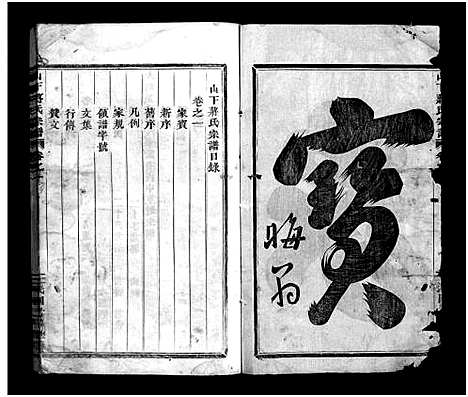 寶
晦翁
山下蔣氏宗譜目錄
卷之一
家寶
新序
舊序
凡例
家規
領譜字號
文集
行傳
贊文